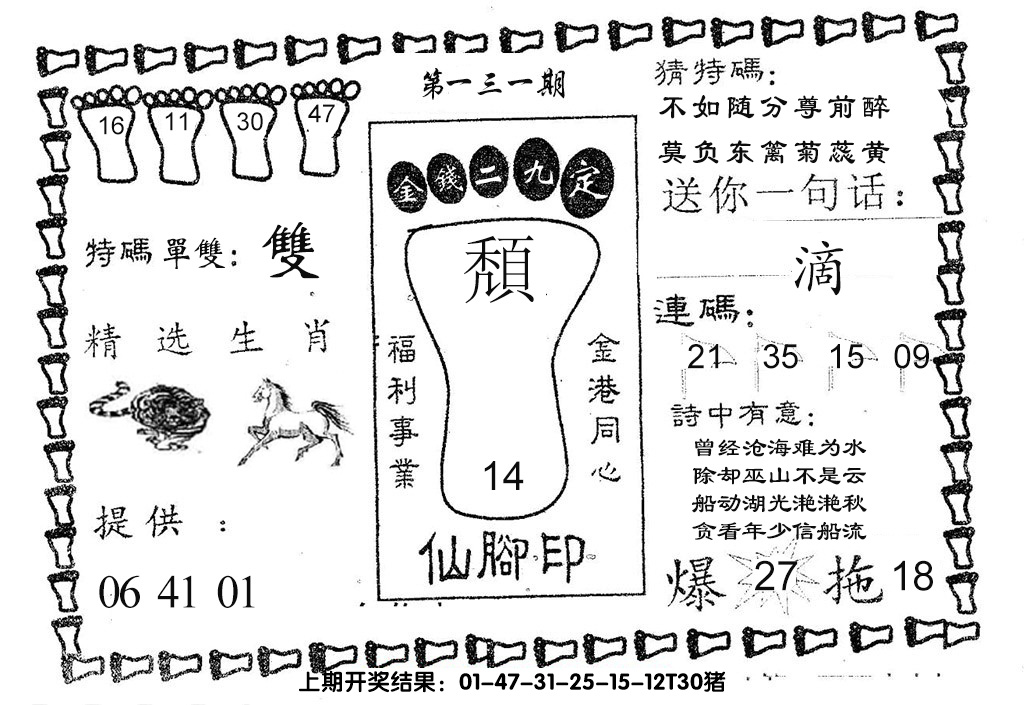 第一三一期
16 11 30 47
特碼單雙：雙
精选生肖
提供：
06 41 01
金錢二九定
頹
福利事業
金港同心
14
仙腳印
猜特碼：
不如随分尊前醉
莫负东篱菊蕊黄
送你一句话：
滴
連碼：
21 35 15 09
詩中有意：
曾经沧海难为水
除却巫山不是云
船动湖光滟滟秋
贪看年少信船流
爆 27 拖 18
上期开奖结果：01-47-31-25-15-12T30猪